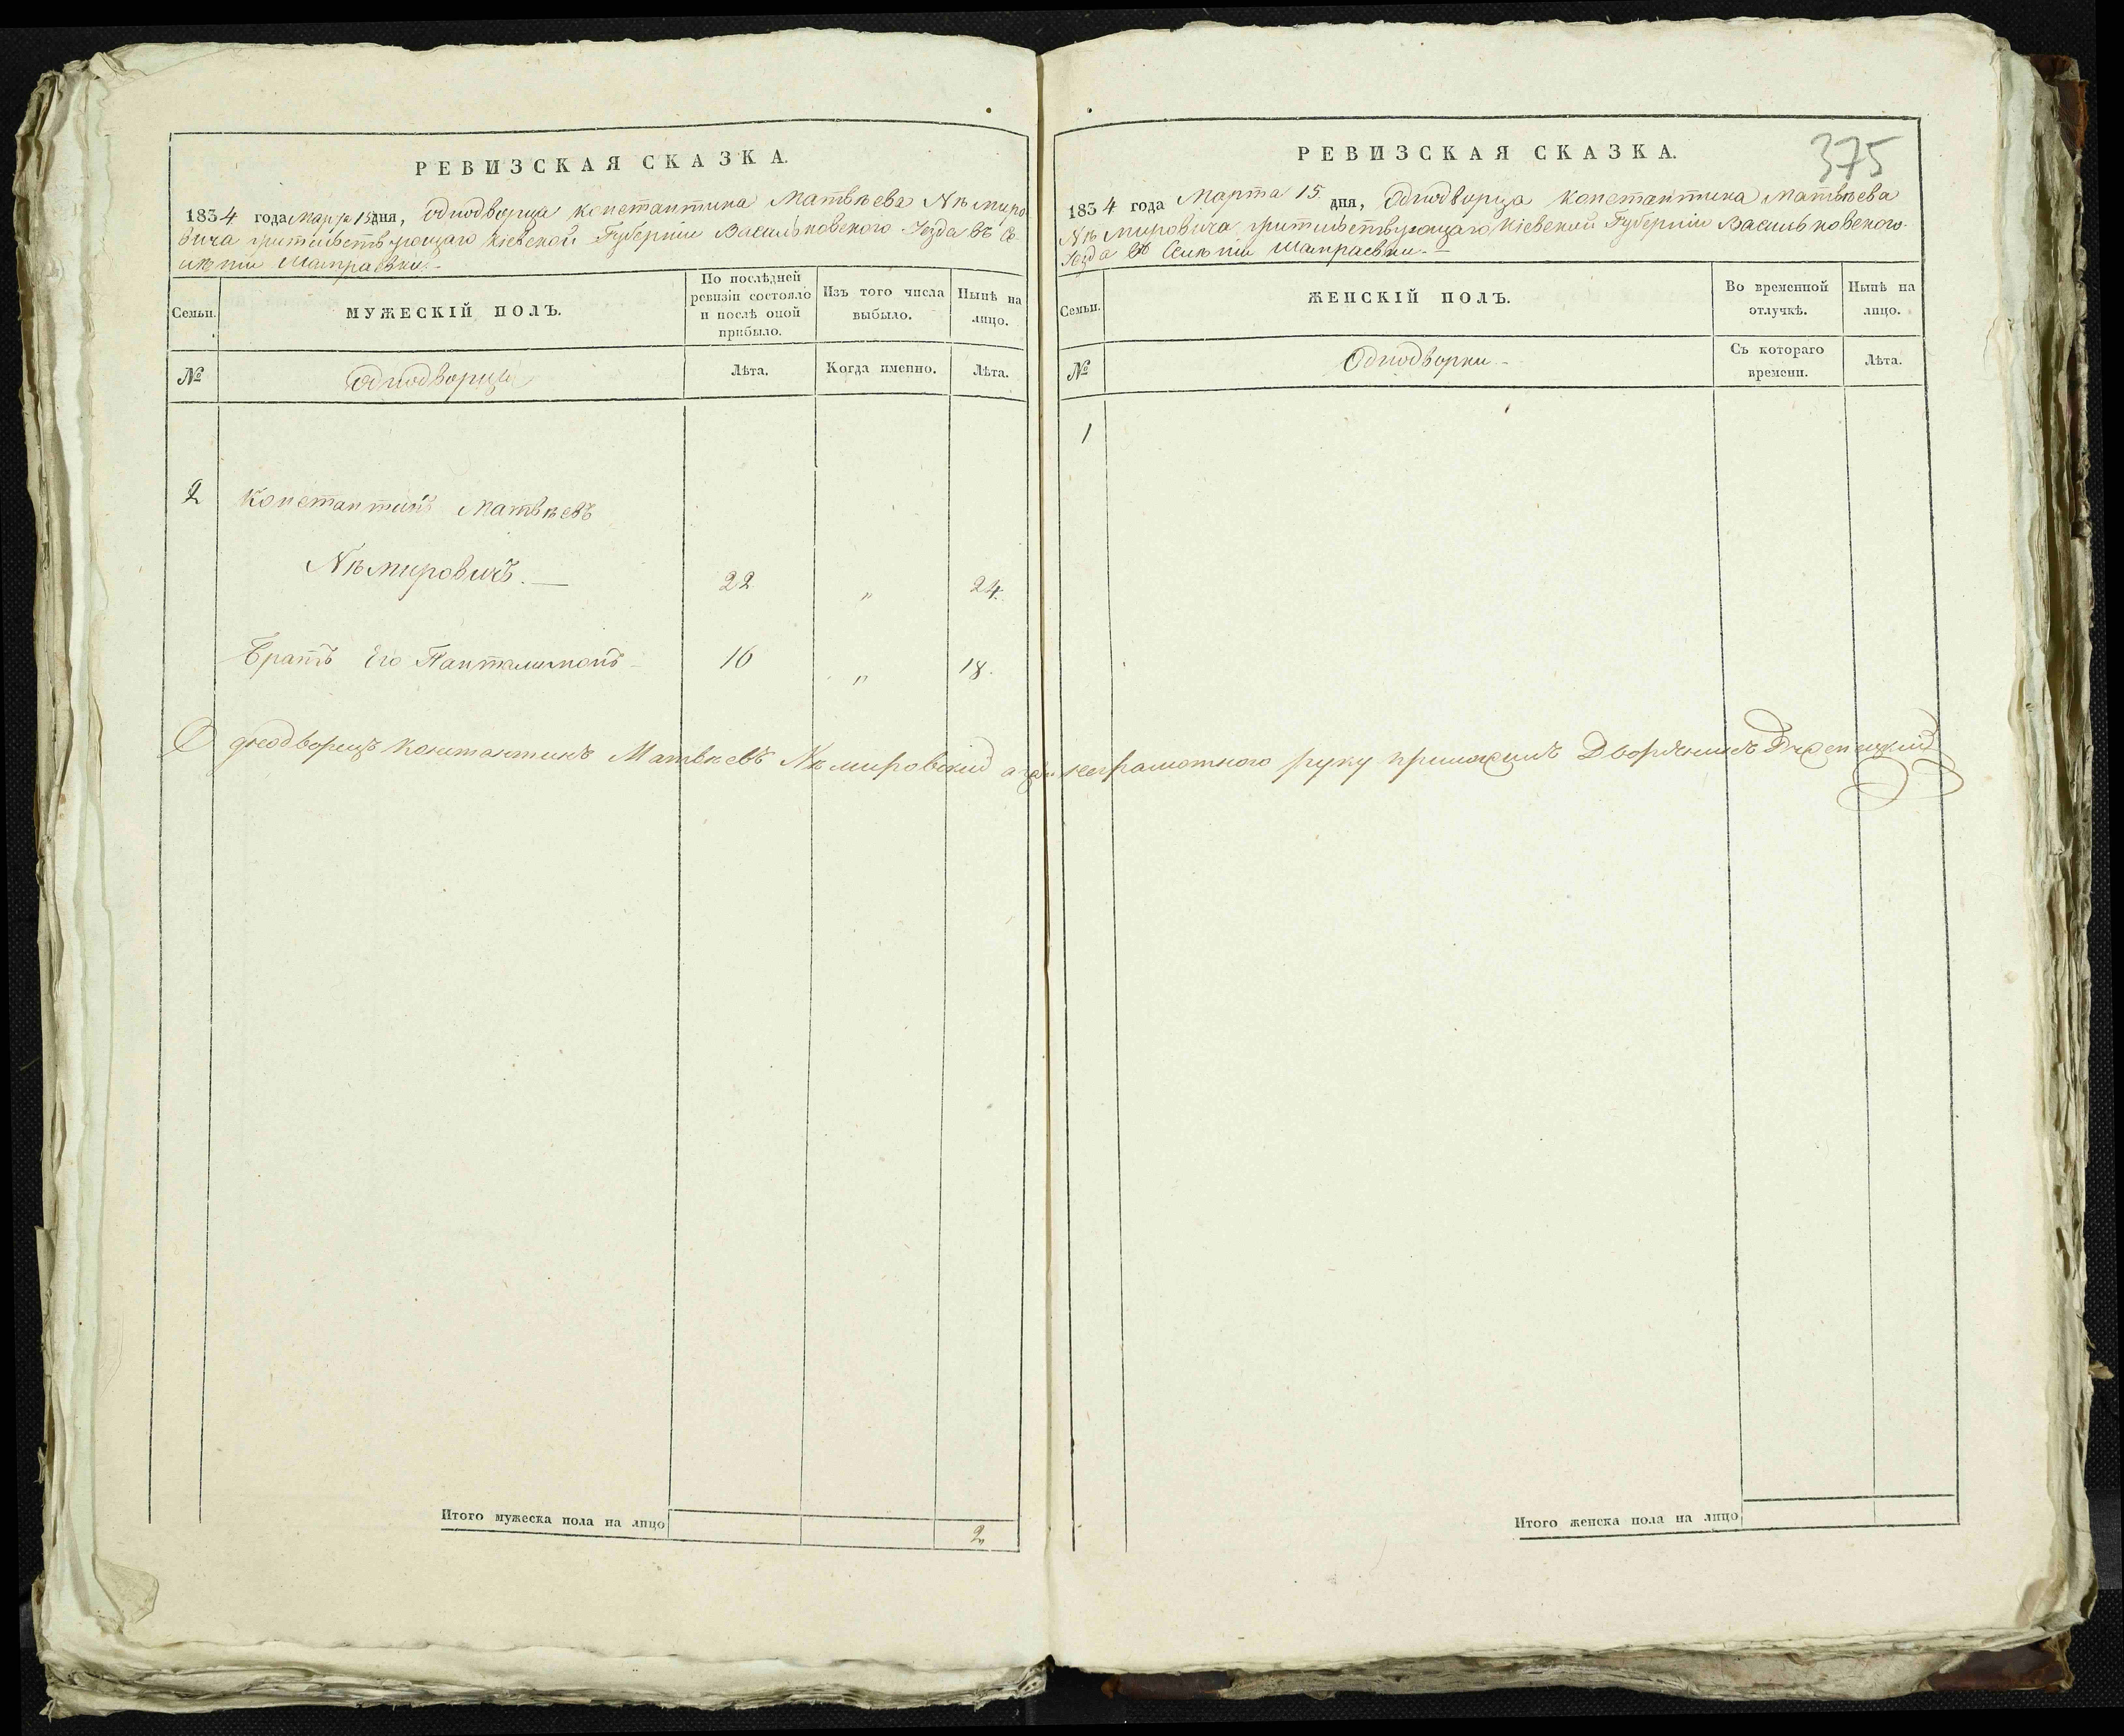 РЕВИЗСКАЯ СКАЗКА.
1834 года Марта 15 дня, Однодворца Константина Матвѣева Нѣмиро
вича жительствующаго Кіевской Губерніи Васильковского Уезда въ Се
лѣніи Шапраевки.-
Семьи.
МУЖЕСКІЙ ПОЛЪ.
По послѣдней ревизіи состояло и послѣ оной прибыло.
Изъ того числа выбыло.
Нынѣ на лицо.
№
Однодворцы
Лѣта.
Когда именно.
Лѣта.
2 Константинъ Матвѣевъ
Нѣмировичъ.— 22 " 24.
Братъ Его Панталимонъ- 16 " 18.
Итого мужеска пола на лицо 2
РЕВИЗСКАЯ СКАЗКА.
375
1834 года Марта 15 дня, Однодворца Константина Матвѣева
Нѣмировича жительствующаго Кіевской Губерніи Васильковского
Уезда въ Селѣніи Шапраевки.-
Семьи.
ЖЕНСКІЙ ПОЛЪ.
Во временной отлучкѣ.
Нынѣ на лицо.
№
Однодворки-
Съ котораго времени.
Лѣта.
1
Однодворецъ Константинъ Матвѣевъ Нѣмировскій а за него неграмотного руку приложилъ Дворянинъ
Итого женска пола на лицо